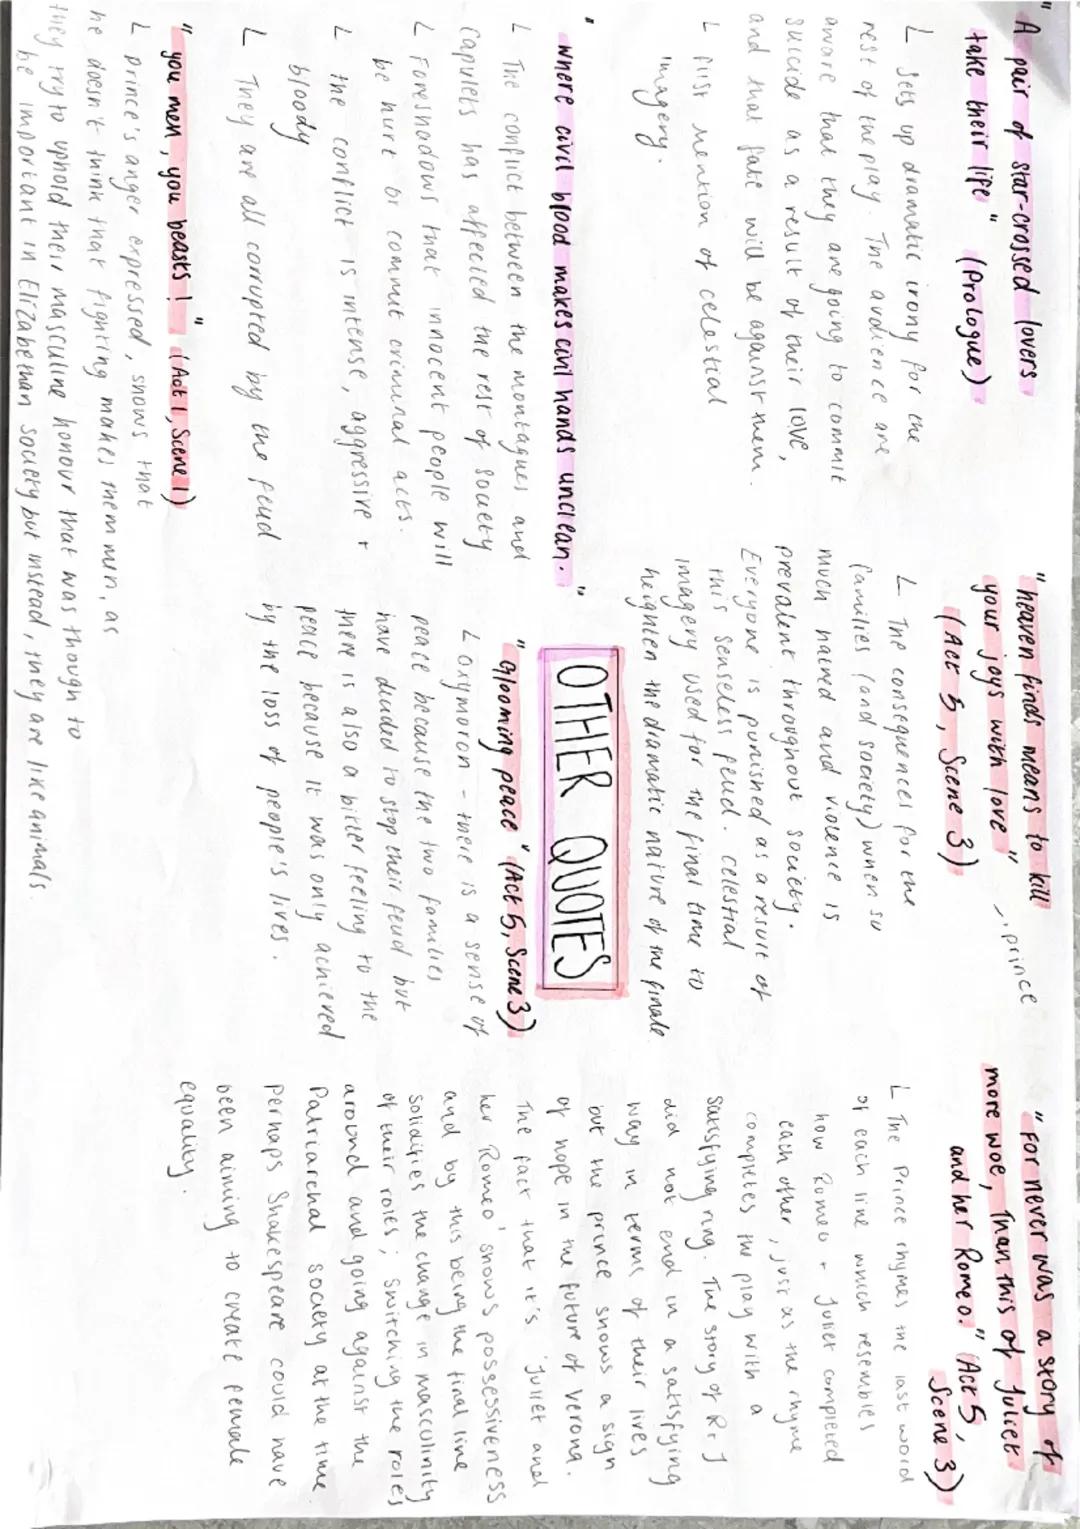 " A pair of star-crossed lovers
take their life " (Prologue)
L sets up dramatic irony for the
rest of the play. The audience are
aware that they are going to commit
suicide as a result of their love,
and that fate will be against them.
L first mention of celestial
imagery.
" where civil blood makes civil hands unclean. "
L The conflict between the montagues and
Capulets has affected the rest of society
L Forshadows that innocent people will
be hurt or commit criminal acts.
L the conflict is intense, aggressive +
bloody
L They are all corrupted by the feud
" you men, you beasts! " (Act 1, Scene 1)
L prince's anger expressed, shows that
he doesn't think that fighting makes them men, as
they try to uphold their masculine honour that was though to
be important in Elizabethan society but instead, they are like animals.
" heaven finds means to kill
your joys with love " - prince
(Act 5, Scene 3)
L The consequences for the
families (and society) when so
much hatred and violence is
prevalent throughout society.
Everyone is punished as a result of
this senseless feud. celestial
imagery used for the final time to
heighten the dramatic nature of the finale
OTHER QUOTES
" glooming peace " (Act 5, Scene 3)
L oxymoron - there is a sense of
peace because the two families
have decided to stop their feud but
there is also a bitter feeling to the
peace because it was only achieved
by the loss of people's lives.
" For never was a story of
more woe, Than this of Juliet
and her Romeo. " (Act 5,
Scene 3)
L The Prince rhymes the last word
of each line which resembles
how Romeo + Juliet completed
each other, just as the rhyme
completes the play with a
satisfying ring. The story of R+J
did not end in a satisfying
way in terms of their lives
but the prince shows a sign
of hope in the future of Verona.
The fact that it's 'Juliet and
her Romeo' shows possessiveness
and by this being the final line
solidifies the change in masculinity
of their roles; switching the roles
around and going against the
Patriarchal society at the time.
Perhaps Shakespeare could have
been aiming to create female
equality.